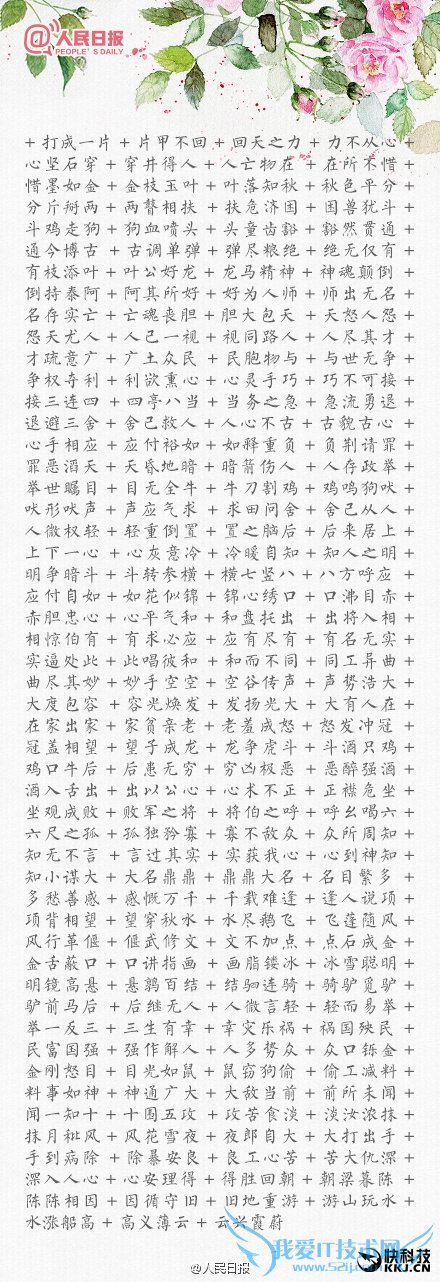 @人民日报
PEOPLE'S DAILY
+ 打成一片 + 片甲不回 + 回天之力 + 力不从心 +
心坚石穿 + 穿井得人 + 人亡物在 + 在所不惜 +
惜墨如金 + 金枝玉叶 + 叶落知秋 + 秋色平分 +
分斤掰两 + 两瞽相扶 + 扶危济困 + 困兽犹斗 +
斗鸡走狗 + 狗血喷头 + 头童齿豁 + 豁然贯通 +
通今博古 + 古调单弹 + 弹尽粮绝 + 绝无仅有 +
有枝添叶 + 叶公好龙 + 龙马精神 + 神魂颠倒 +
倒持泰阿 + 阿其所好 + 好为人师 + 师出无名 +
名存实亡 + 亡魂丧胆 + 胆大包天 + 天怒人怨 +
怨天尤人 + 人己一视 + 视同路人 + 人尽其才 +
才疏意广 + 广土众民 + 民胞物与 + 与世无争 +
争权夺利 + 利欲熏心 + 心灵手巧 + 巧不可接 +
接三连四 + 四亭八当 + 当务之急 + 急流勇退 +
退避三舍 + 舍己救人 + 人心不古 + 古貌古心 +
心手相应 + 应付裕如 + 如释重负 + 负荆请罪 +
罪恶滔天 + 天昏地暗 + 暗箭伤人 + 人存政举 +
举世瞩目 + 目无全牛 + 牛刀割鸡 + 鸡鸣狗吠 +
吠形吠声 + 声应气求 + 求田问舍 + 舍己从人 +
人微权轻 + 轻重倒置 + 置之脑后 + 后来居上 +
上下一心 + 心灰意冷 + 冷暖自知 + 知人之明 +
明争暗斗 + 斗转参横 + 横七竖八 + 八方呼应 +
应付自如 + 如花似锦 + 锦心绣口 + 口沸目赤 +
赤胆忠心 + 心平气和 + 和盘托出 + 出将入相 +
相惊伯有 + 有求必应 + 应有尽有 + 有名无实 +
实逼处此 + 此唱彼和 + 和而不同 + 同工异曲 +
曲尽其妙 + 妙手空空 + 空谷传声 + 声势浩大 +
大度包容 + 容光焕发 + 发扬光大 + 大有人在 +
在家出家 + 家贫亲老 + 老羞成怒 + 怒发冲冠 +
冠盖相望 + 望子成龙 + 龙争虎斗 + 斗酒只鸡 +
鸡口牛后 + 后患无穷 + 穷凶极恶 + 恶醉强酒 +
酒入舌出 + 出以公心 + 心术不正 + 正襟危坐 +
坐观成败 + 败军之将 + 将伯之呼 + 呼幺喝六 +
六尺之孤 + 孤独矜寡 + 寡不敌众 + 众所周知 +
知无不言 + 言过其实 + 实获我心 + 心到神知 +
知小谋大 + 大名鼎鼎 + 鼎鼎大名 + 名目繁多 +
多愁善感 + 感慨万千 + 千载难逢 + 逢人说项 +
项背相望 + 望穿秋水 + 水尽鹅飞 + 飞蓬随风 +
风行革偃 + 偃武修文 + 文不加点 + 点石成金 +
金舌蔽口 + 口讲指画 + 画脂镂冰 + 冰雪聪明 +
明镜高悬 + 悬鹑百结 + 结驷连骑 + 骑驴觅驴 +
驴前马后 + 后继无人 + 人微言轻 + 轻而易举 +
举一反三 + 三生有幸 + 幸灾乐祸 + 祸国殃民 +
民富国强 + 强作解人 + 人多势众 + 众口铄金 +
金刚怒目 + 目光如鼠 + 鼠窃狗偷 + 偷工减料 +
料事如神 + 神通广大 + 大敌当前 + 前所未闻 +
闻一知十 + 十围五攻 + 攻苦食淡 + 淡妆浓抹 +
抹月秕风 + 风花雪夜 + 夜郎自大 + 大打出手 +
手到病除 + 除暴安良 + 良工心苦 + 苦大仇深 +
深入人心 + 心安理得 + 得胜回朝 + 朝梁暮陈 +
陈陈相因 + 因循守旧 + 旧地重游 + 游山玩水 +
水涨船高 + 高义薄云 + 云兴霞蔚
@人民日报
我爱IT技术网
快科技
KKJ.CN